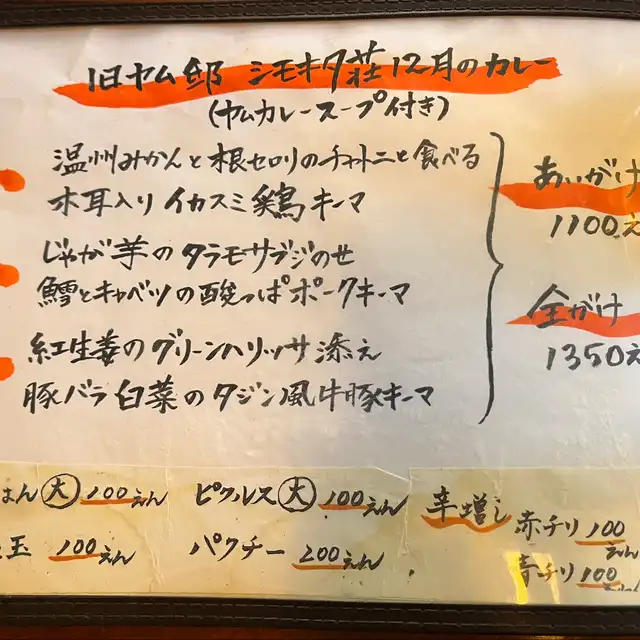 旧ヤム邸 シモキタ荘 12月のカレー
(ヤムカレースープ付き)
温州みかんと根セロリのチャトニと食べる
木耳入りイカスミ鶏キーマ
じゃが芋のタラモサブジのせ
鱈とキャベツの酸っぱポークキーマ
紅生姜のグリーンハリッサ添え
豚バラ白菜のタジン風牛豚キーマ
あいがけ
1100え
全がけ
1350え
はん 大 100えん
ピクルス 大 100えん
玉 100えん
パクチー 200えん
辛増し
赤チリ 100えん
青チリ 100